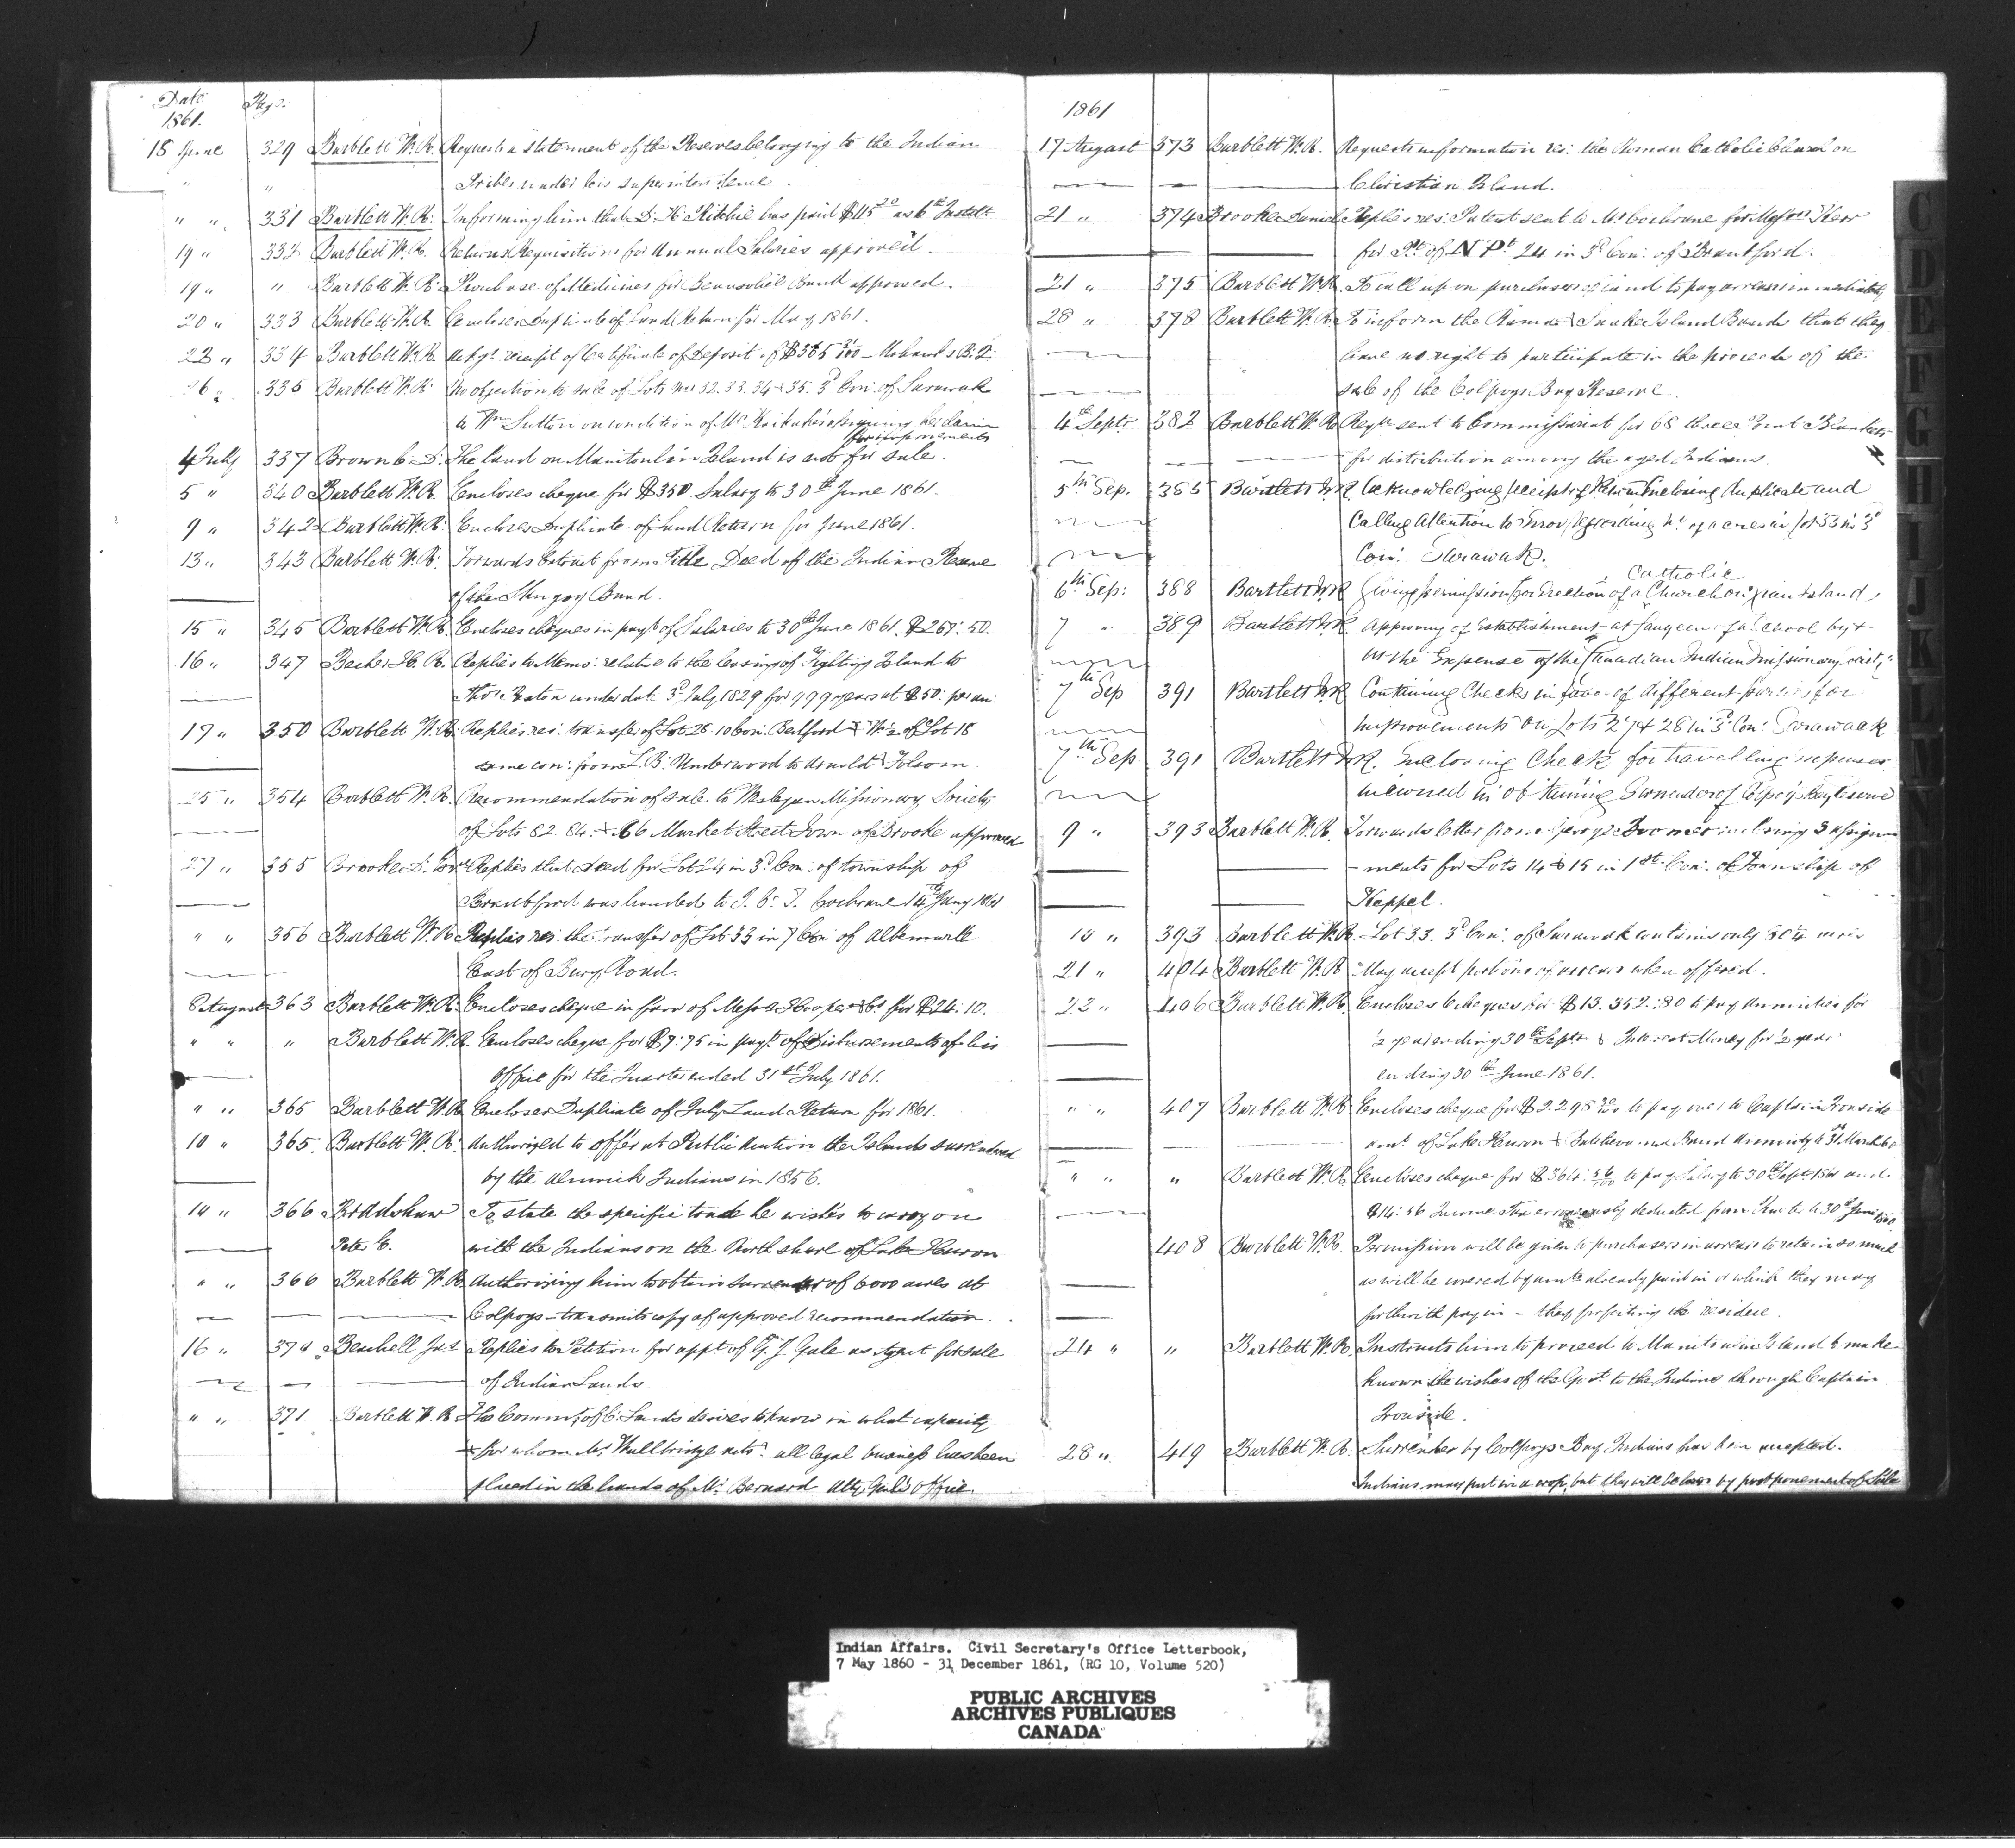 Date Page
1861.
18 June 329 Bartlett W. R. Requests a statement of the Reserves belonging to the Indian
" " Tribes under his superintendence.
" " 331 Bartlett W. R. Informing him that D. H. Ritchie has paid $115 6th Inst
19 " 332 Bartlett W. R. Returns Requisitions for Annual Salaries approved.
19 " " Bartlett W. R. Purchase of Medicines for Beausoliel Band approved.
20 " 333 Bartlett W. R. Encloses Duplicate of Land Return for May 1861.
22 " 334 Bartlett W. R. Ackgs receipt of Certificate of Deposit of $385 Mohawks B. Q.
26 " 335 Bartlett W. R. No objection to sale of Lots nos 32. 33. 34 & 35. 3d Con. of Sarawak
to Wm Sutton on condition of Mr assigning his claim
for improvements
4 July 337 Brown C. D. The land on Manitoulin Island is not for sale.
5 " 340 Bartlett W. R. Encloses cheque for $350 Salary to 30th June 1861.
9 " 342 Bartlett W. R. Encloses Duplicate of Land Return for June 1861.
13 " 343 Bartlett W. R. Forwards Extract from Title Deed of the Indian Reserve
of the Band.
15 " 345 Bartlett W. R. Encloses cheques in payt of Salaries to 30th June 1861. $267.50.
16 " 347 Becher H. R. Replies to Memo: relative to the leasing of Fighting Island to
Thos. Paxton under date 3d July 1829 for 999 years at $50. per an:
17 " 350 Bartlett W. R. Replies res: transfer of Lot 25. 10 Con. Bedford & W. ½ of Lot 18
same con: from L. B. Underwood to Arnold Folsom
25 " 354 Bartlett W. R. Recommendation of sale to Wesleyan Missionary Society
of Lots 82. 84. & 86 Market Street Town of Brooke approved
27 " 355 Brooke D. Replies that Deed for Lot 24 in 3d Con: of township of
Brantford was handed to Cochrane 14th Jany 1861
" " 356 Bartlett W. R. Replies res: the transfer of Lot 33 in 7 Con of Albemarle
East of Bury Road.
8 August 363 Bartlett W. R. Encloses cheque in favor of Messrs Hooper & Co. for $24.10.
" " " Bartlett W. R. Encloses cheque for $7.75 in payt of Disbursements of his
office for the Quarter ended 31st July 1861.
" " 365 Bartlett W. R. Encloses Duplicate of July Land Return for 1861.
10 " 365. Bartlett W. R. Authorized to offer at Public Auction the Islands surrendered
by the Alnwick Indians in 1856.
14 " 366 Braddshaw To state the specific trade he wishes to carry on
Peter C. with the Indians on the North shore of Lake Huron
" " 366 Bartlett W. R. Authorising him to obtain surrender of 6000 acres at
Colpoys - transmits copy of approved recommendation.
16 " 370 Benbell Jas Replies to Petition for appt of G. J. Gale as Agent for sale
of Indian Lands
" " 371 Bartlett W. R. The Commr of C. Lands desires to know in what capacity
& for whom Mr Wallbridge acts: all legal business has been
placed in the hands of Mr Bernard Atty Genls office.
1861
17 August 373 Bartlett W. R. Requests information res: the Roman Catholic Church on
Christian Island.
21 " 374 Brooke Daniel Replies res: Patent sent to Mr Cochrane for Messrs Kerr
for Pt of N Pt 24 in 3d Con: of Brantford.
21 " 375 Bartlett W. R. To call upon purchasers of land to pay arrears immediately
28 " 378 Bartlett W. R. To inform the Rama & Snake Island Bands that they
have no right to participate in the proceeds of the
sale of the Colpoys Bay Reserve.
4th Septr 382 Bartlett W. R. Reqn sent to Commissariat for 68 three Point Blankets
for distribution among the aged Indians.
5th Sep. 385 Bartlett W. R. Acknowledging receipt of Return Enclosing Duplicate and
Calling Attention to Error regarding No of acres in Lot 33 in 3d
Con: Sarawak.
Catholic
6th Sep: 388 Bartlett W. R. Giving permission for Erection of a Church on Island
7 " 389 Bartlett W. R. Approving of Establishment at Saugeen of a School
at the Expense of the Canadian Indian Missionary
7th Sep 391 Bartlett W. R. Containing Checks in favor of different parties for
improvements on Lots 27 & 28 in 3d Con: Sarawak
7th Sep 391 Bartlett W. R. Enclosing Check for travelling expenses
incurred in obtaining Surrender of Colpoys Bay Reserve
9 " 393 Bartlett W. R. Forwards letter from George Broomer enclosing 3 assign
ments for Lots 14 & 15 in 1st Con: of Township of
Keppel.
10 " 393 Bartlett W. R. Lot 33. 3d Con: of Sarawak contains only acres
21 " 404 Bartlett W. R. May accept portions of arrears when offered.
23 " 406 Bartlett W. R. Encloses cheques for $13.352.80 to pay annuities for
½ year ending 30th Sept & Interest Money for ½ year
ending 30th June 1861.
" " 407 Bartlett W. R. Encloses cheque for $2295 to pay over to Captain Ironside
amt of Lake Huron & Band Annuity to 31st March
" " " Bartlett W. R. Encloses cheque for $364.56/100 to pay Salary to 30th Sept 1861 and
$14.56 Income Tax erroneously deducted from to 30th June
408 Bartlett W. R. Permission will be given to purchasers in arrears to retain so much
as will be covered by amts already paid in or which they may
forthwith pay in - they forfeiting the residue.
24 " " Bartlett W. R. Instructs him to proceed to Manitoulin Island & make
known the wishes of the Govt to the Indians through Captain
Ironside.
28 " 419 Bartlett W. R. Surrender by Colpoys Bay Indians has been accepted.
Indians may put in a crop, but they will be losers by postponement of Sale
C
D
E
F
G
H
I
J
K
L
M
N
O
P
Indian Affairs. Civil Secretary's Office Letterbook,
7 May 1860 - 31 December 1861, (RG 10, Volume 520)
PUBLIC ARCHIVES
ARCHIVES PUBLIQUES
CANADA